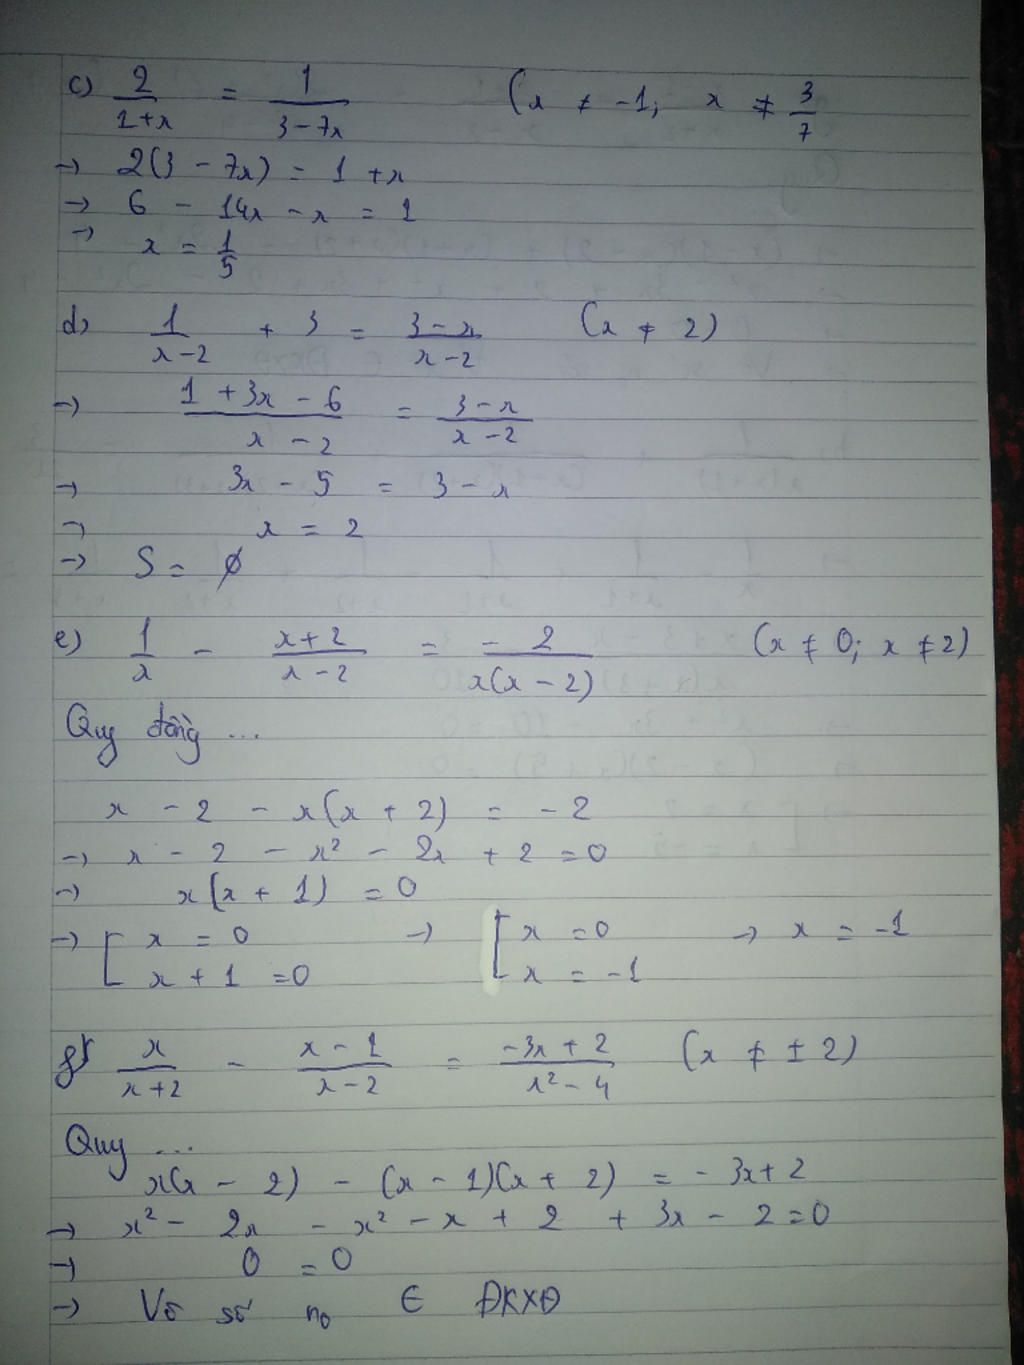 c) 2/(1+x) = 1/(3-7x) (x ≠ -1; x ≠ 3/7)
→ 2(3 - 7x) = 1 + x
→ 6 - 14x - x = 1
→ x = 1/5
d) 1/(x-2) + 3 = (3-x)/(x-2) (x ≠ 2)
→ (1 + 3x - 6)/(x - 2) = (3-x)/(x-2)
→ 3x - 5 = 3 - x
→ x = 2
→ S = ∅
e) 1/x - (x+2)/(x-2) = -2/(x(x-2)) (x ≠ 0; x ≠ 2)
Quy đồng ...
x - 2 - x(x + 2) = -2
→ x - 2 - x² - 2x + 2 = 0
→ x(x + 1) = 0
→ [ x = 0 → [ x = 0 → x = -1
x + 1 = 0 x = -1
g) x/(x+2) - (x-1)/(x-2) = (-3x+2)/(x²-4) (x ≠ ± 2)
Quy ...
x(x - 2) - (x - 1)(x + 2) = -3x + 2
→ x² - 2x - x² - x + 2 + 3x - 2 = 0
→ 0 = 0
→ Vô số no ∈ ĐKXĐ